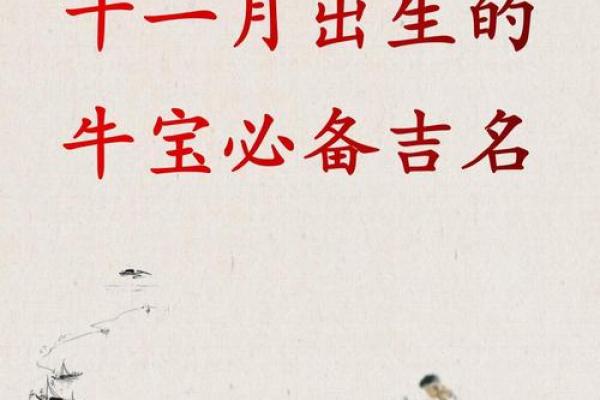 十一月出生的
牛宝必备吉名